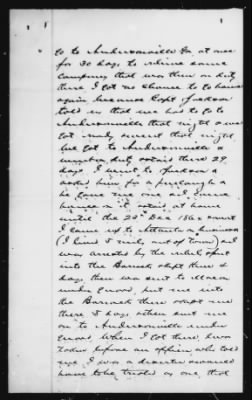 1
go to Andersonville Ga at once
for 30 days to relieve some
Company that was then on duty
there I got no chance to go home
again because Capt Jackson
told us that we had to go to
Andersonville that night & we
got ready & went that night
We got to Andersonville &
duty & staid there 29
days I went to Jackson &
asked him for a furlough &
he gave me one and I came
home & staid at home
until the 22d Dec 186 & went
I came up to Atlanta on business
(I lived 5 miles out of town) and
was arrested by the
into the Barracks kept there
days then was sent to Macon
under guard, put me into
the Barracks there kept me
there 5 days & then sent me
on to Andersonville under
guard. When I got there I was
taken before an officer who told
me I was a deserter & would
have to be tried as one, that